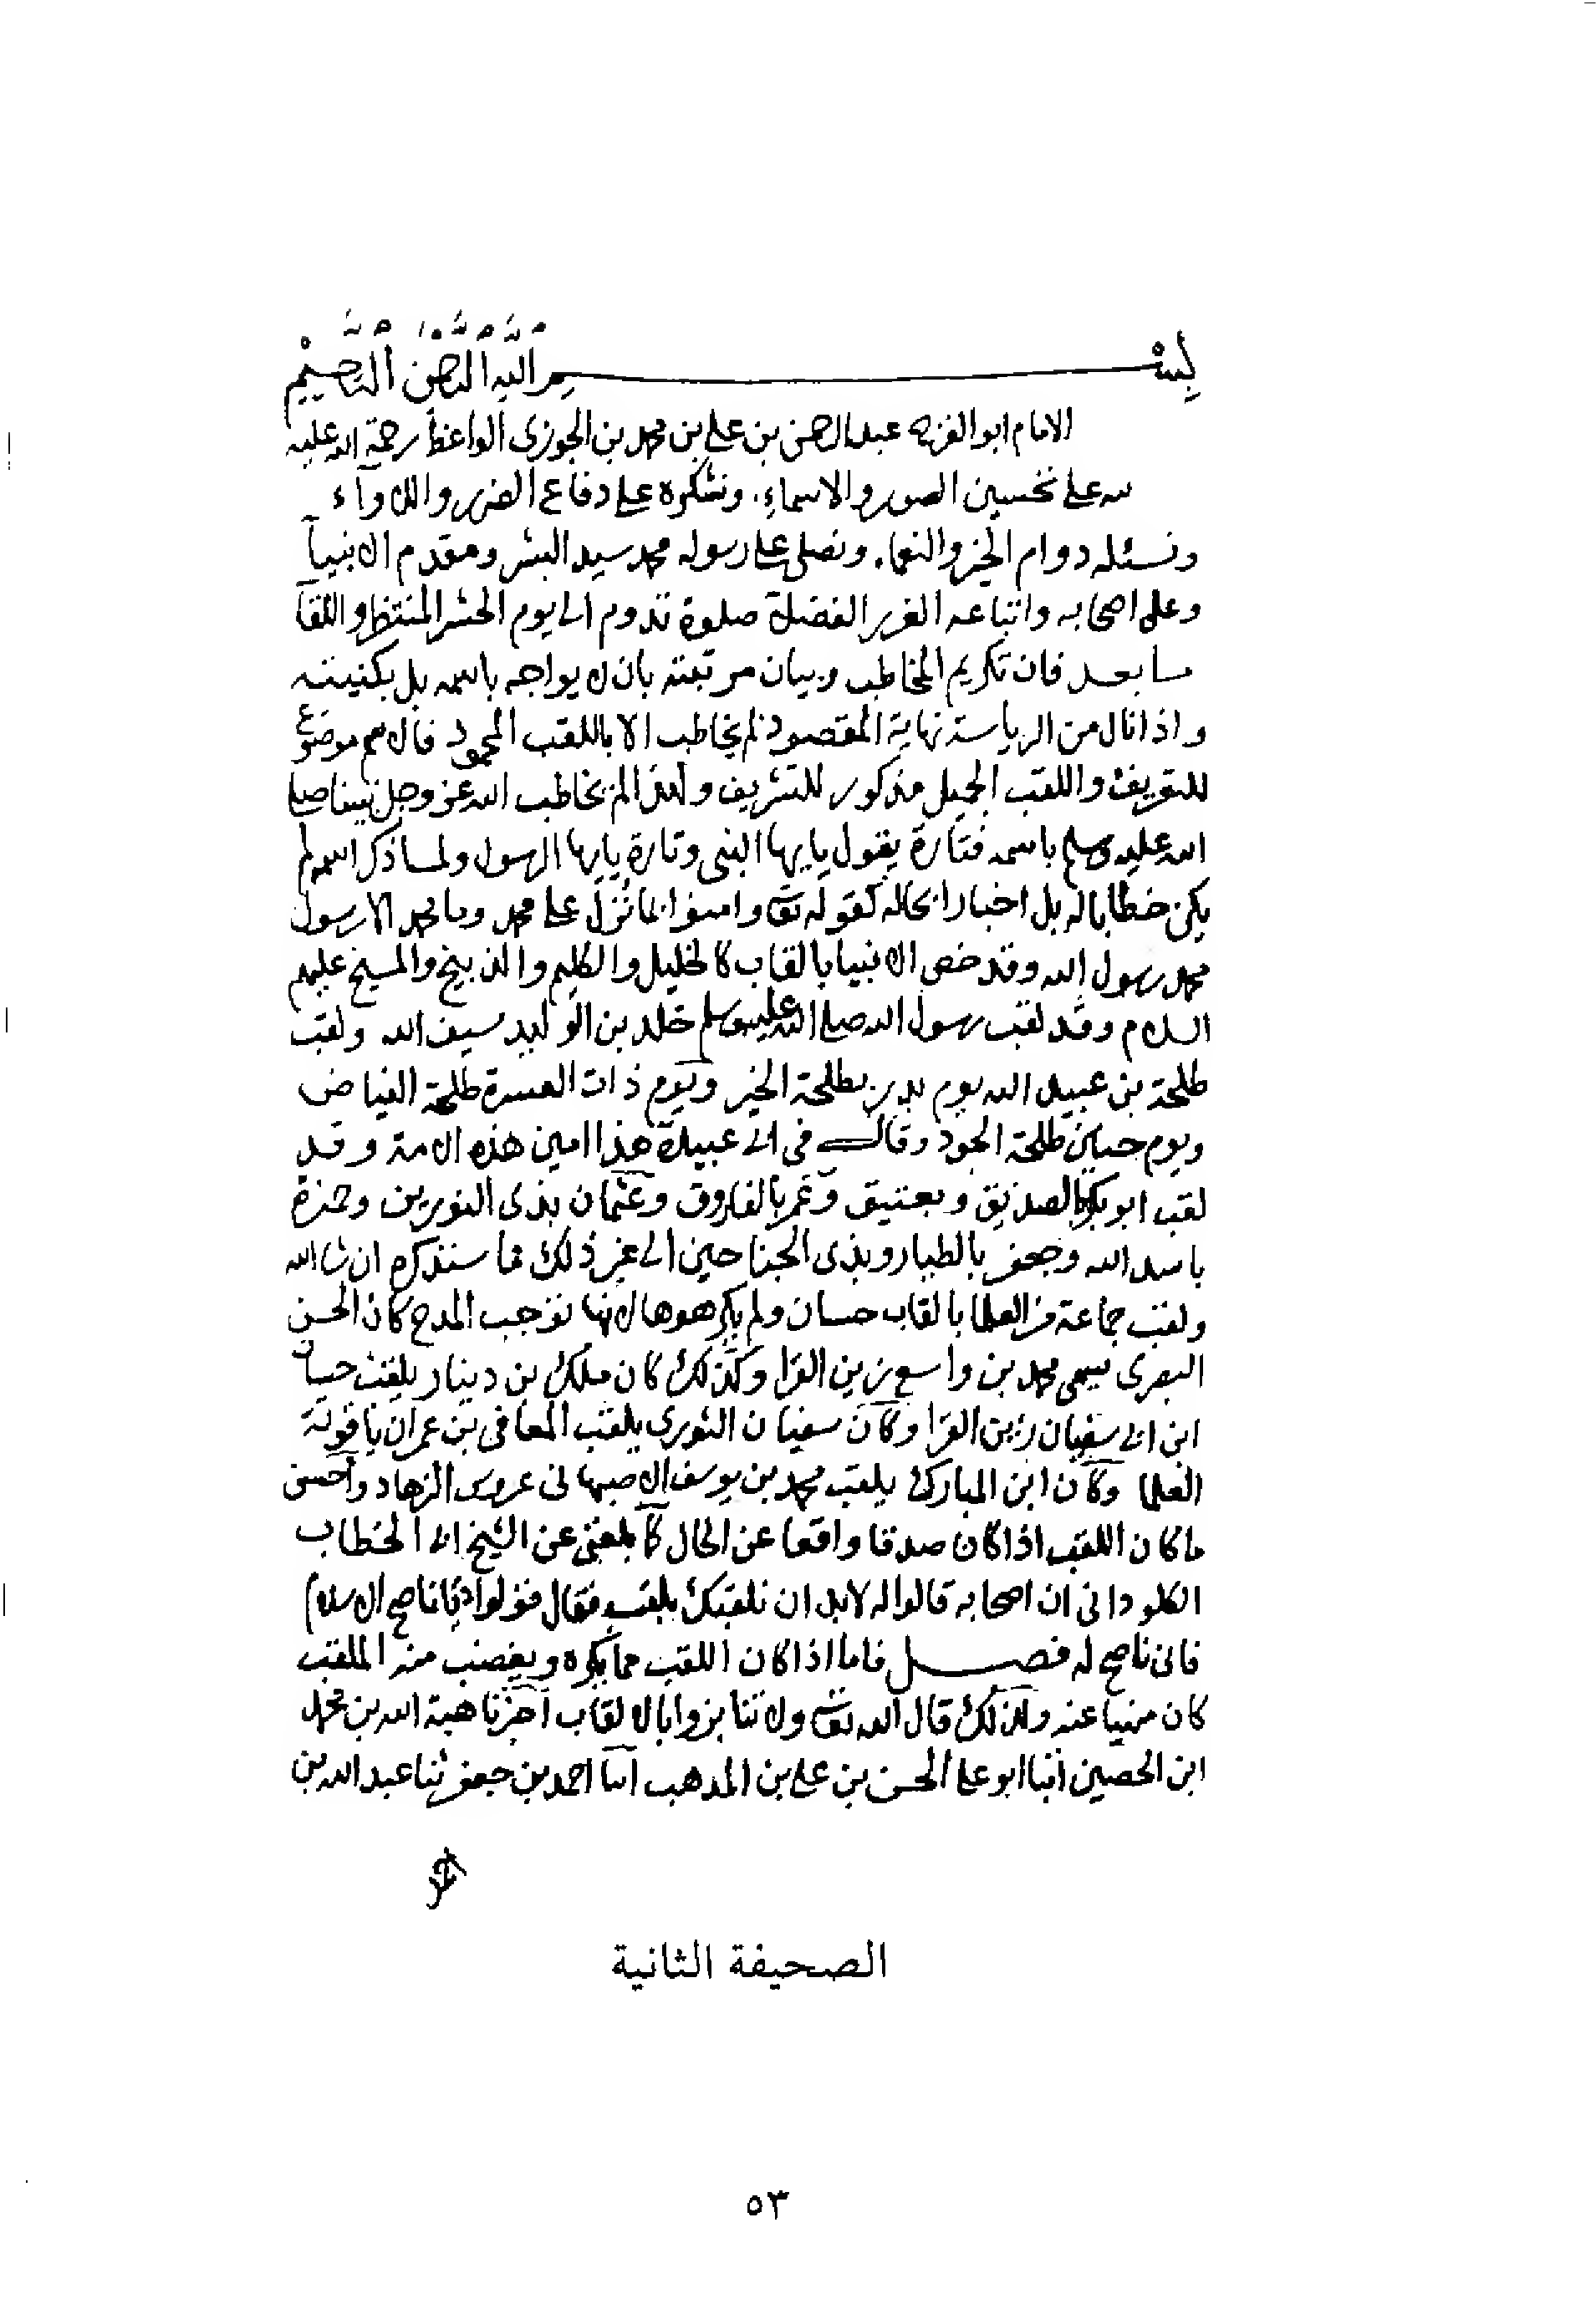 بِسْم اللَّه الرَّحْمَٰن الرَّحِيْمِ
الامام ابو الفرج عبد الرحمن بن علي بن محمد بن الجوزى الواعظ رحمة الله عليه
لله على تحسين الصور والاسماءِ. ونشكره على دفاع الضرر واللاوآء
ونسئله دوام الخير والنعماء. ونصلي على رسوله محمد سيد البشر ومقدم الانبيآ
وعلى اصحابه واتباعه الغرر الفضلآ صلوة تدوم الى يوم الحشر المنتظر واللقآ
ما بعد فان تكريم المخاطب وبيان مرتبته بان لا يواجه باسمه بل بكنيته
واذا نال من الرياسة نهاية المقصود لم يخاطب الا باللقب المحمود فالاسم موضوع
للتعريف واللقب الجميل مذكور للتشريف ولهذا لم يخاطب الله عز وجل نبينا صلى
الله عليه وسلم باسمه فتارة يقول يايها النبى وتارة يايها الرسول ولما ذكر اسمه لم
يكن خطابا له بل اخبارا بحاله كقوله تعٓ وامنوا بما نُزِّل على محمد وما محمد الا رسول
محمد رسول الله وقد خص الانبيا بالقاب كالخليل والكليم والذبيح والمسيح عليهم
السلام وقد لقب رسول الله صلى الله عليه وسلم خلد بن الوليد سيف الله ولقب
طلحة بن عبيد الله يوم بدر بطلحة الخير ويوم ذات العسرة طلحة الفياض
ويوم حنين طلحة الجود وقال في ابي عبيدة هذا امين هذه الامة وقد
لقب ابو بكر بالصديق وبعتيق وعمر بالفاروق وعثمان بذى النورين وحمزة
باسد الله وجعفر بالطيار وبذى الجناحين الى غير ذلك مما سنذكره ان شا الله
ولقب جماعة من العلما بالقاب حسان ولم يكرهوها لانها توجب المدح كان الحسن
البصرى يسمى محمد بن واسع زين القرا وكذلك كان ملك بن دينار يلقب حسان
ابن ابي سفيان زين القرا وكان سفيان الثورى يلقب المعافى بن عمران ياقوتة
العلما وكان ابن المبارك يلقب محمد بن يوسف الاصبهانى عروس الزهاد واحسن
ما كان اللقب اذا كان صدقا واقعا عن الحال كما بلغني عن الشيخ ابي الخطاب
الكلوذانى ان اصحابه قالوا له لابد ان نلقبك بلقب فقال قولوا ناصح الاسلام
فانى ناصح له فصل فاما اذا كان اللقب مما يكره ويغضب منه الملقب
كان منهيا عنه ولذلك قال الله تعٓ ولا تنابزوا بالالقاب اخبرنا هبة الله بن محمد
ابن الحصين انبا ابو على الحسن بن علي بن المذهب انبا احمد بن جعفر ثنا عبد الله بن
الصحيفة الثانية
٥٣